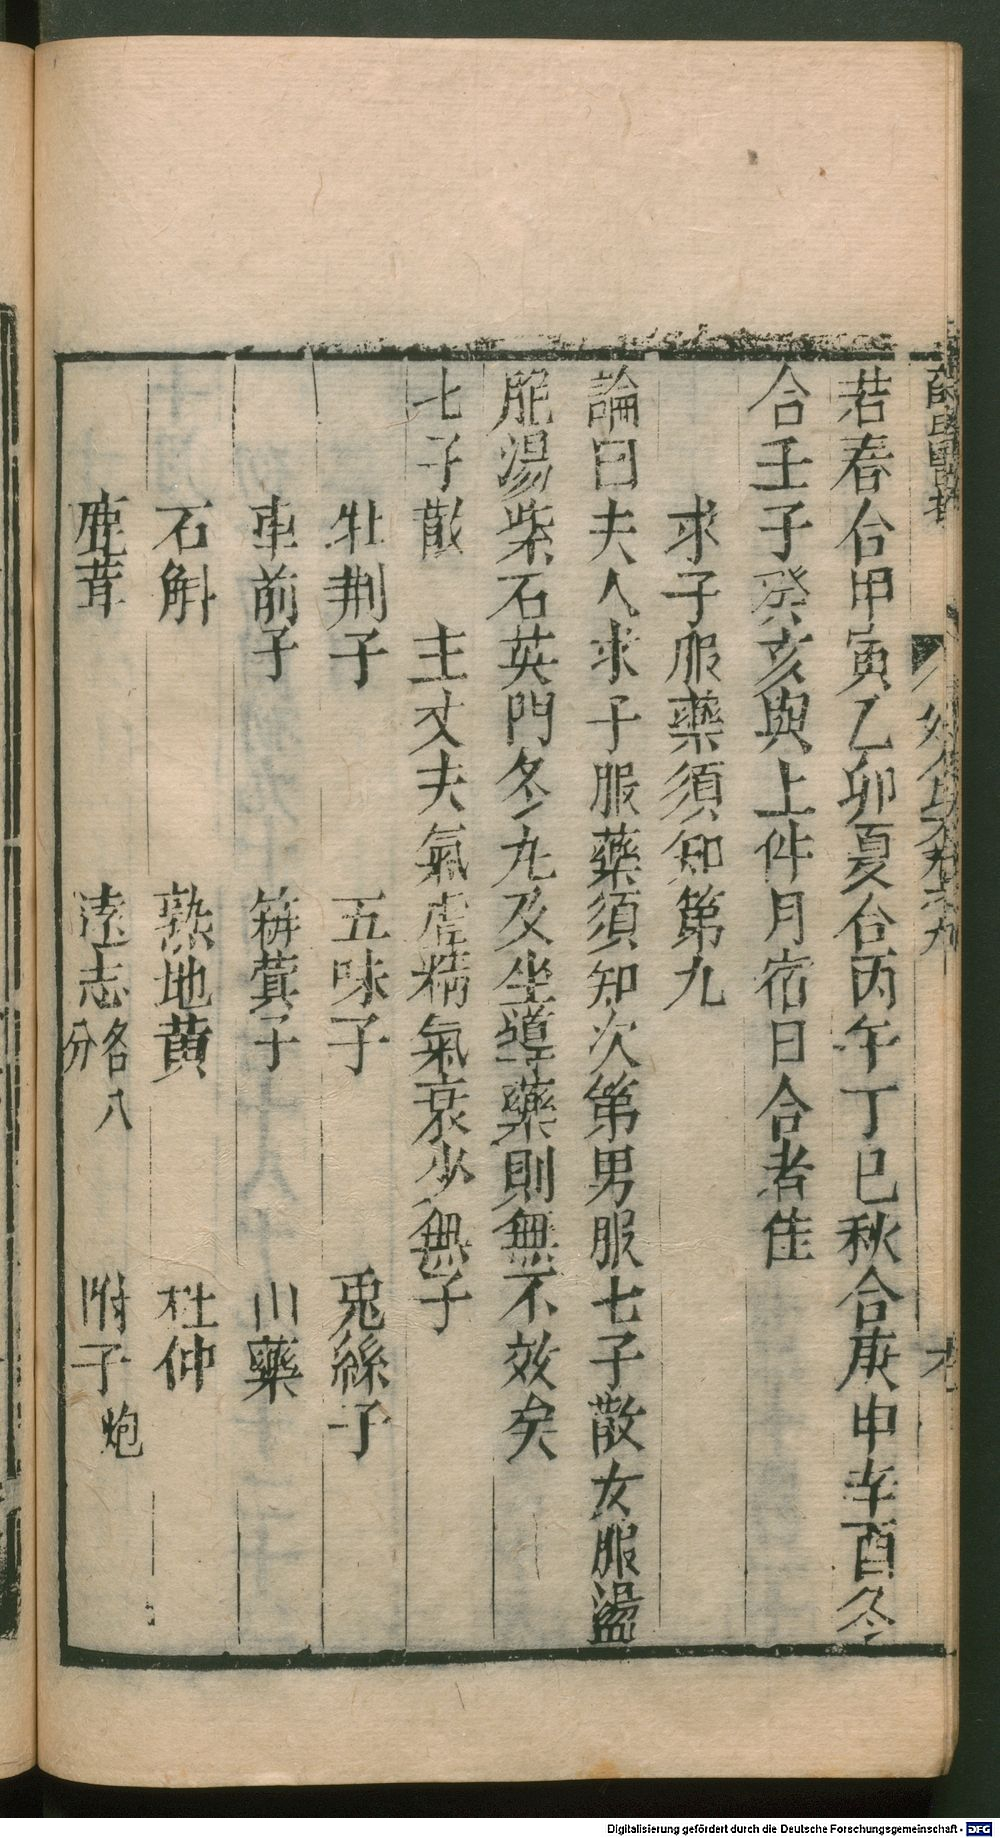 若春合甲寅乙卯夏合丙午丁巳秋合庚申辛酉冬
合壬子癸亥與上件月宿日合者佳
求子服藥須知第九
論曰夫人求子服藥須知次第男服七子散女服盪
胞湯柴石英門冬丸及坐導藥則無不效矣
七子散 主丈夫氣虛精氣衰少無子
牡荆子 五味子 兎絲子
車前子 菥蓂子 山藥
石斛 熟地黄 杜仲
鹿茸 遠志各八分 附子炮
Digitalisierung gefördert durch die Deutsche Forschungsgemeinschaft - DFG